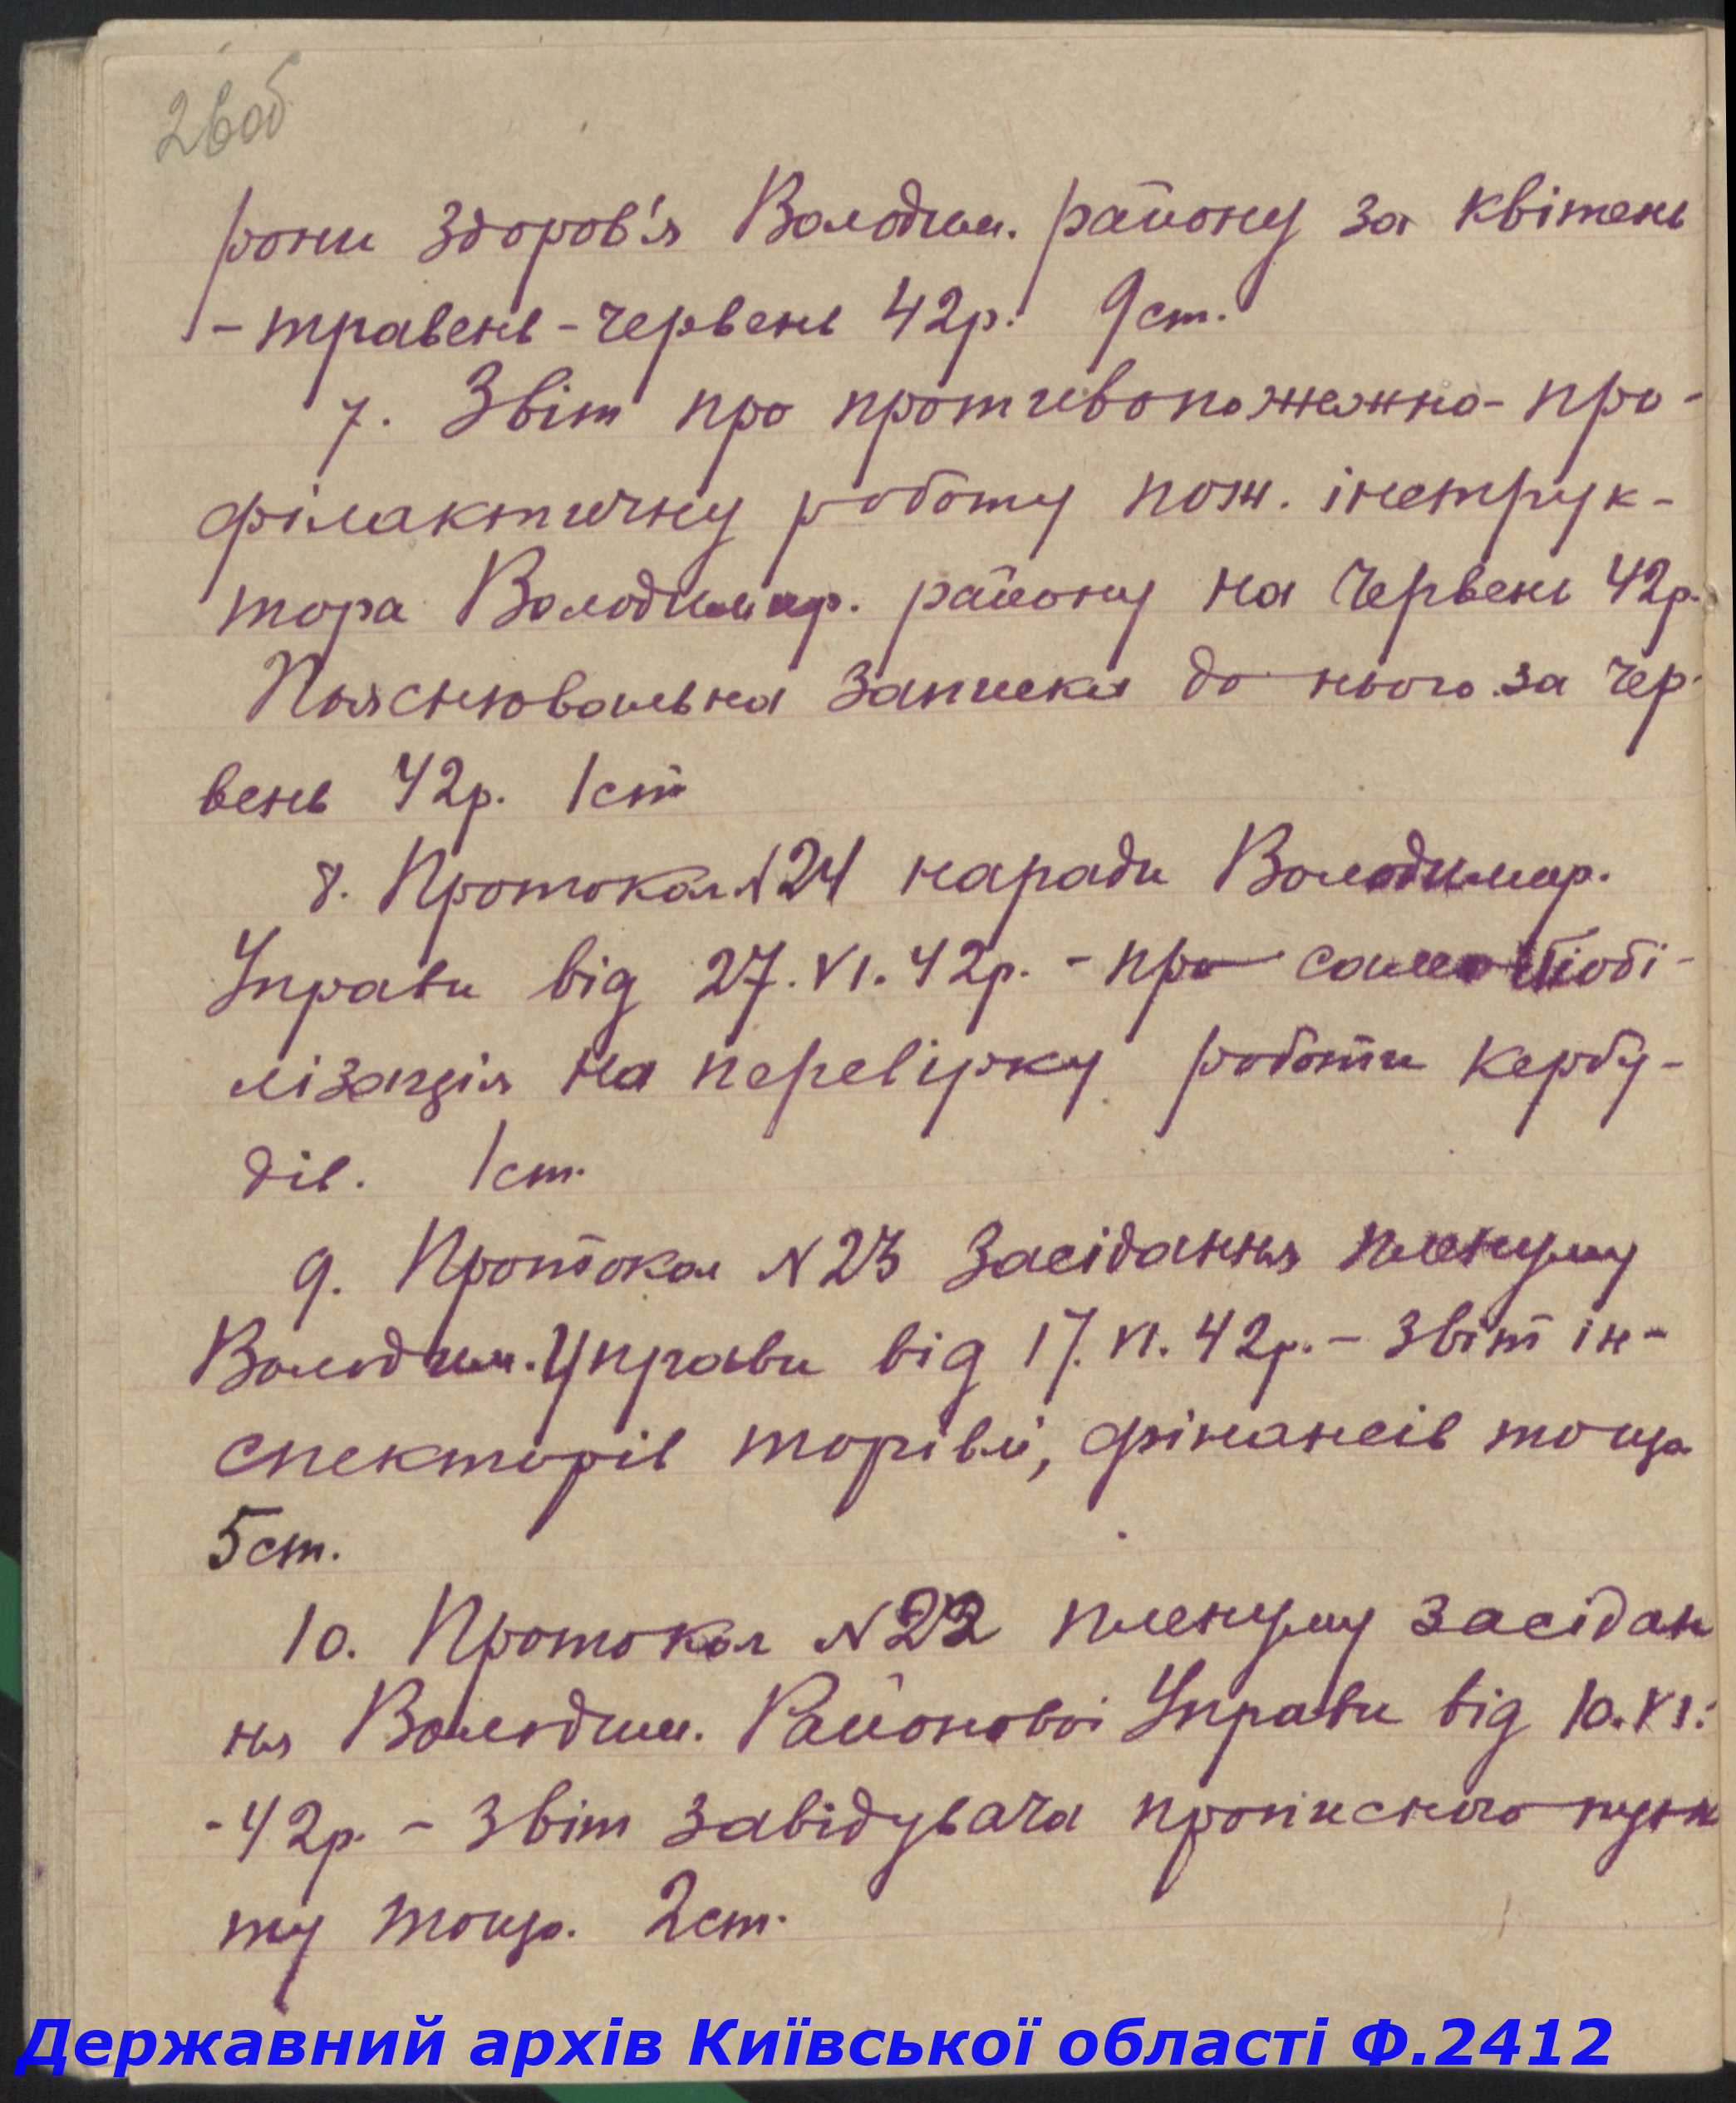 26об
рони здоров'я Володим. району за квітень
- травень - червень 42р. 9 ст.
7. Звіт про противопожежно-про-
філактичну роботу пож. інструк-
тора Володимир. району на червень 42р.
Пояснювальна записка до нього за чер-
вень 42р. 1 ст
8. Протокол №24 наради Володимир.
Управи від 27.VI.42р. - про самомобі-
лізація на перевірку роботи кербу-
дів. 1 ст.
9. Протокол №23 засідання пленуму
Володим. Управи від 17.VI.42р. - звіт ін-
спекторів торівлі, фінансів тощо
5 ст.
10. Протокол №22 пленуму засідан
ня Володим. Районової Управи від 10.VI.
-42р. - звіт завідувача прописного пунк
ту тощо. 2 ст.
Державний архів Київської області Ф.2412